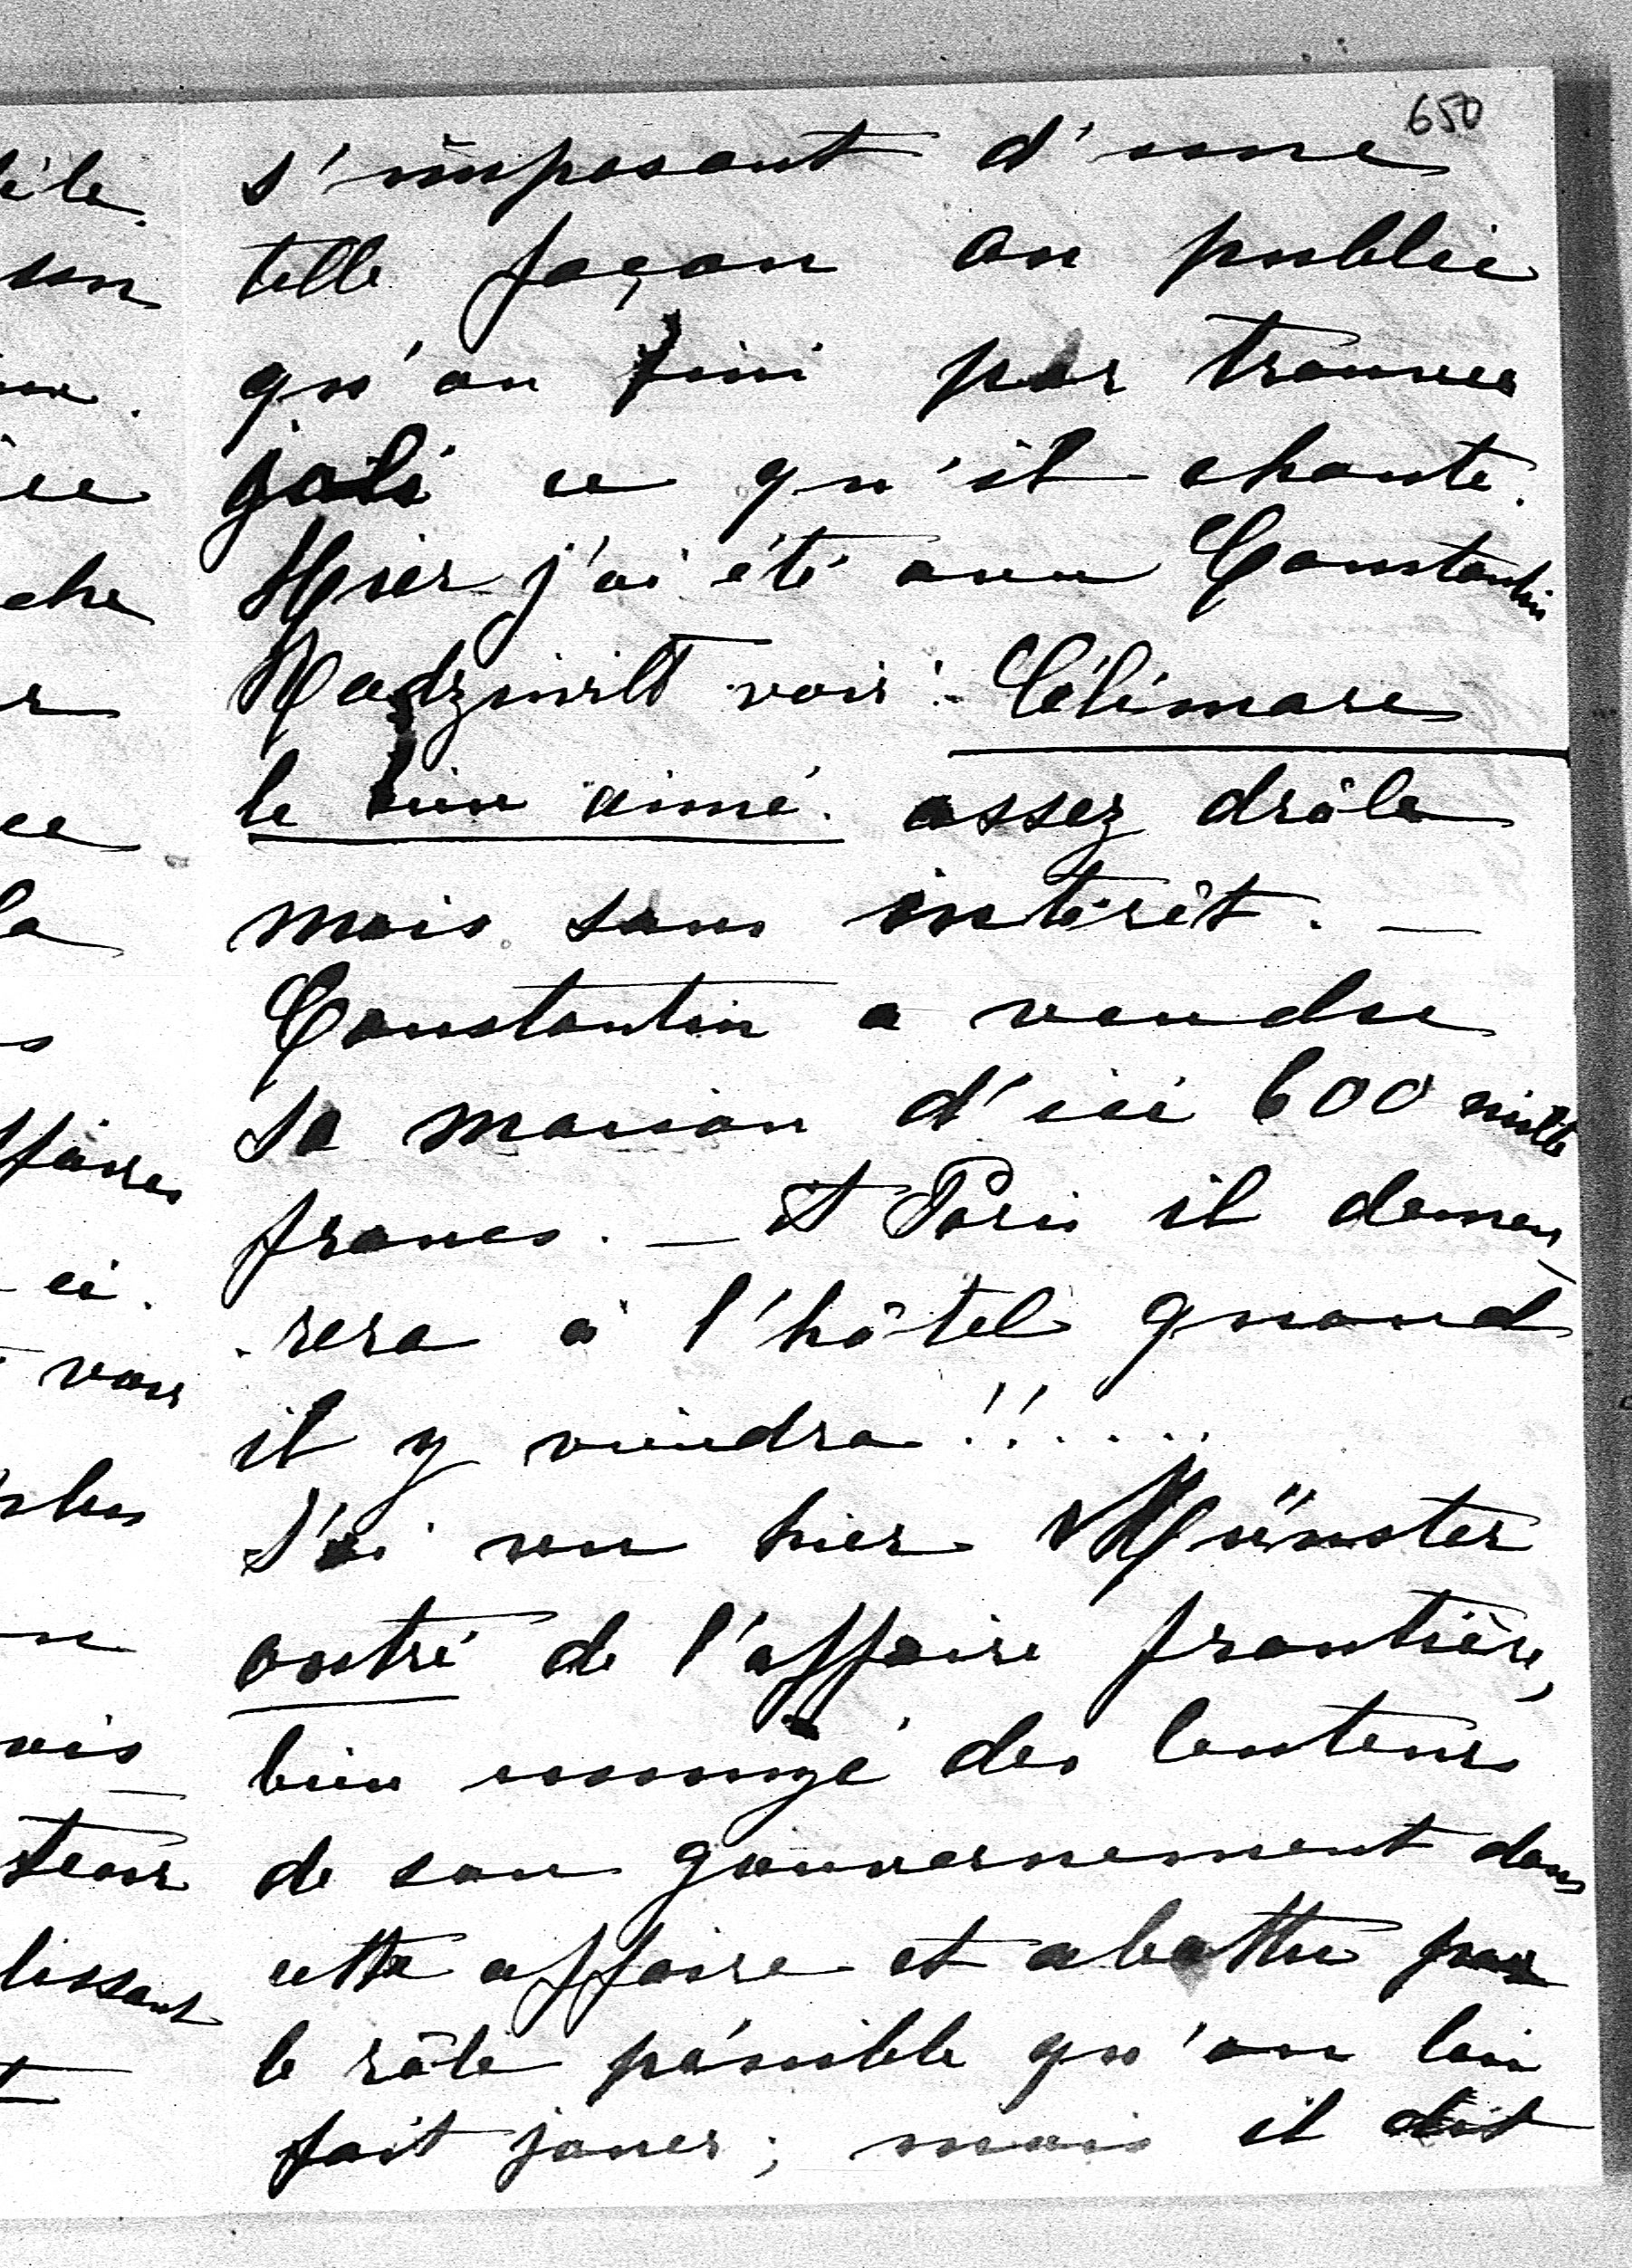 650
s'imposant d'une
telle façon au public
qu'on fini par trouver
joli ce qu'il chante.
Hier j'ai été avec Constantin
Radziwill voir: Célimare
le bien aimé. assez drôle
mais sans intérêt. —
Constantin a vendu
sa maison d'ici 600 mille
francs. — A Paris il demeu
-rera à l'hôtel quand
il y viendra!!.....
J'ai vu hier Münster
outré de l'affaire frontière,
bien des lenteurs
de son gouvernement dans
cette affaire et abattu par
le rôle pénible qu'on lui
fait jouer; mais il doit